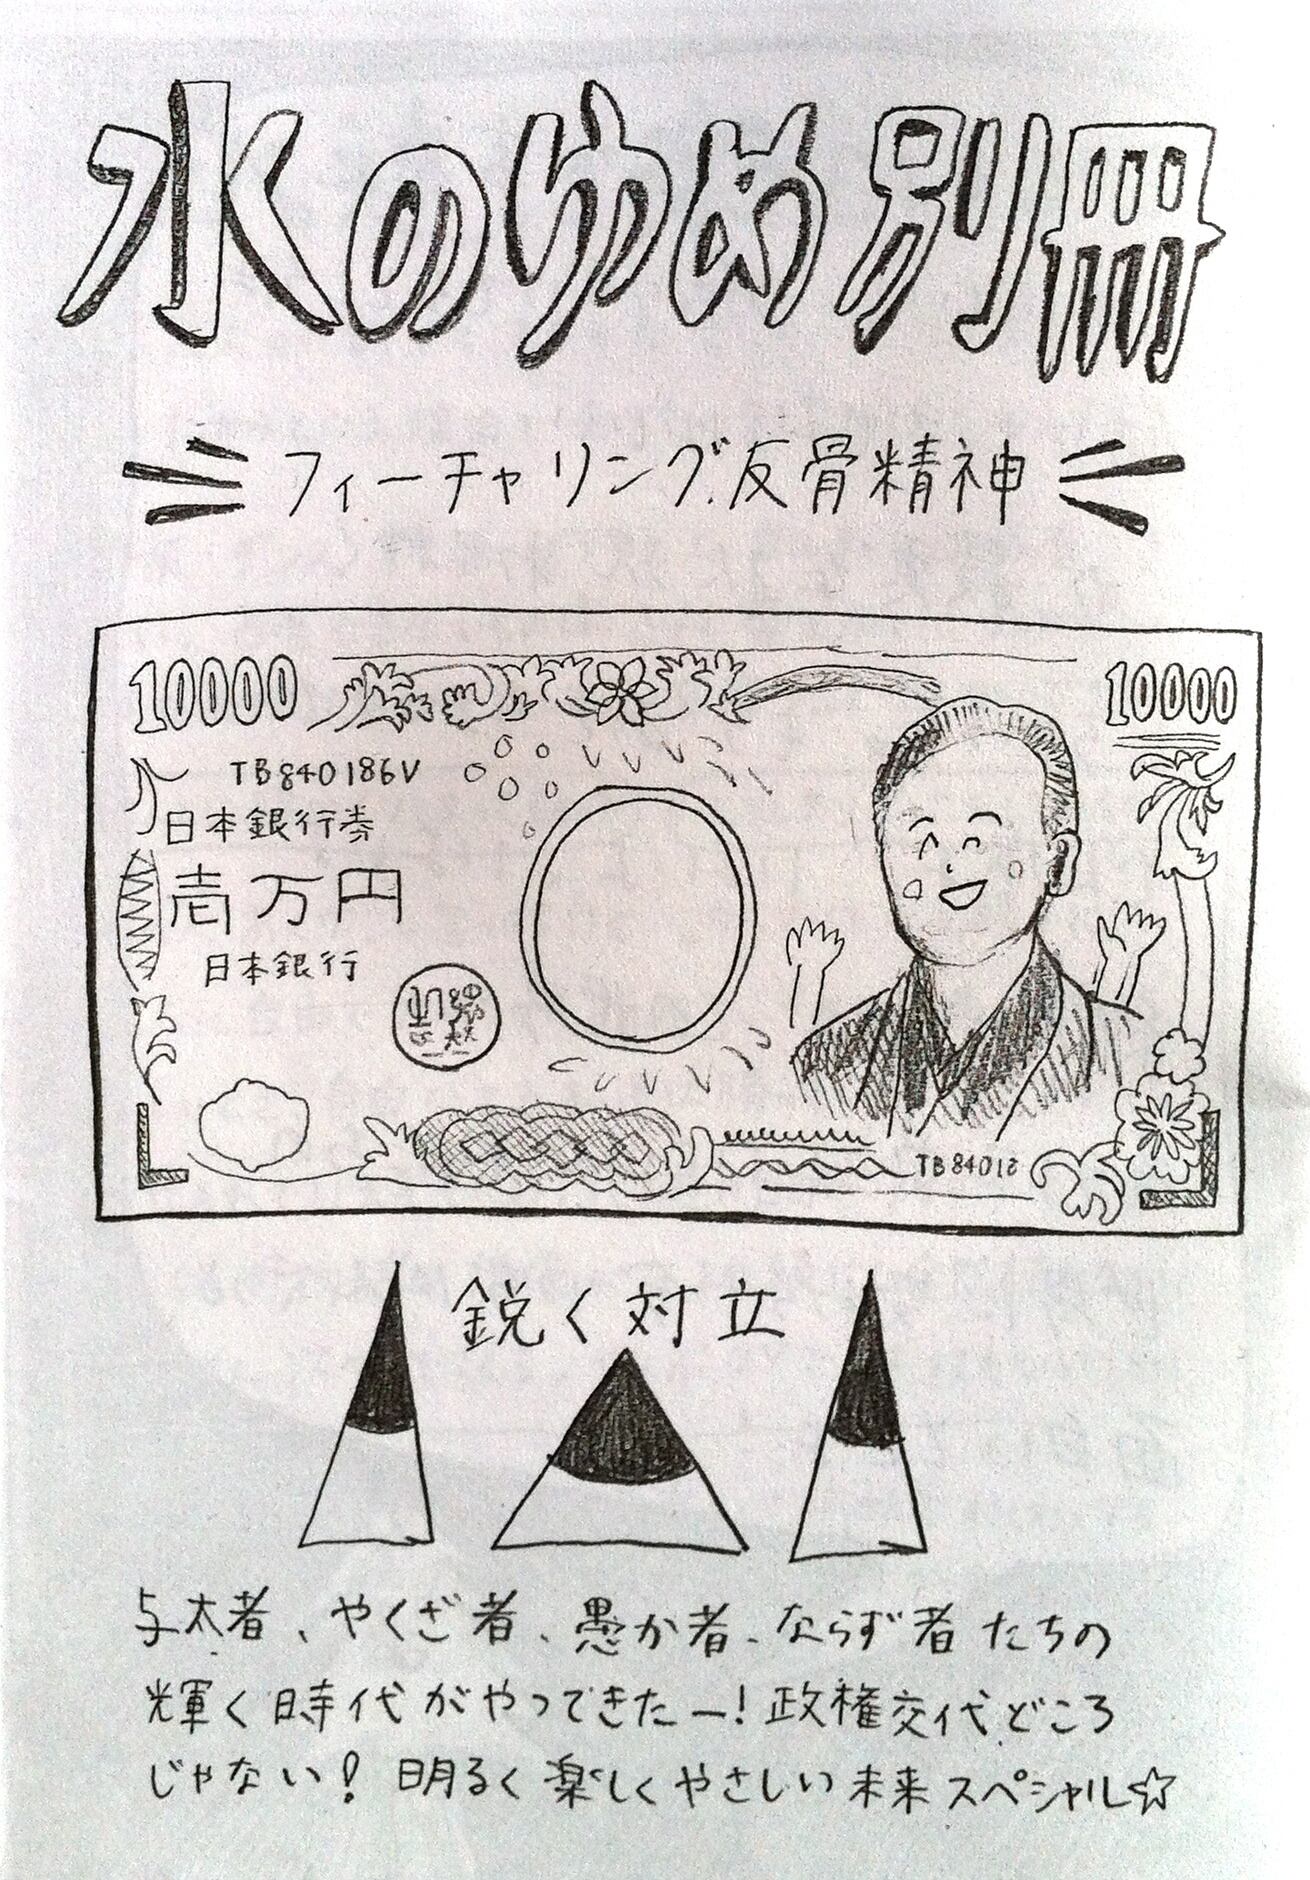 水のゆめ別冊
フィーチャリング反骨精神
10000
10000
TB840186V
日本銀行券
壱万円
日本銀行
TB84018
鋭く対立
与太者、やくざ者、愚か者、ならず者たちの
輝く時代がやってきたー!政権交代どころ
じゃない!明るく楽しくやさしい未来スペシャル☆